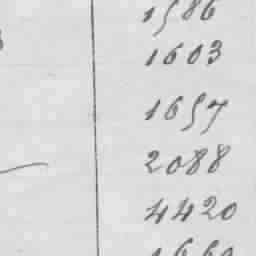 1586
1603
1657
2088
4420